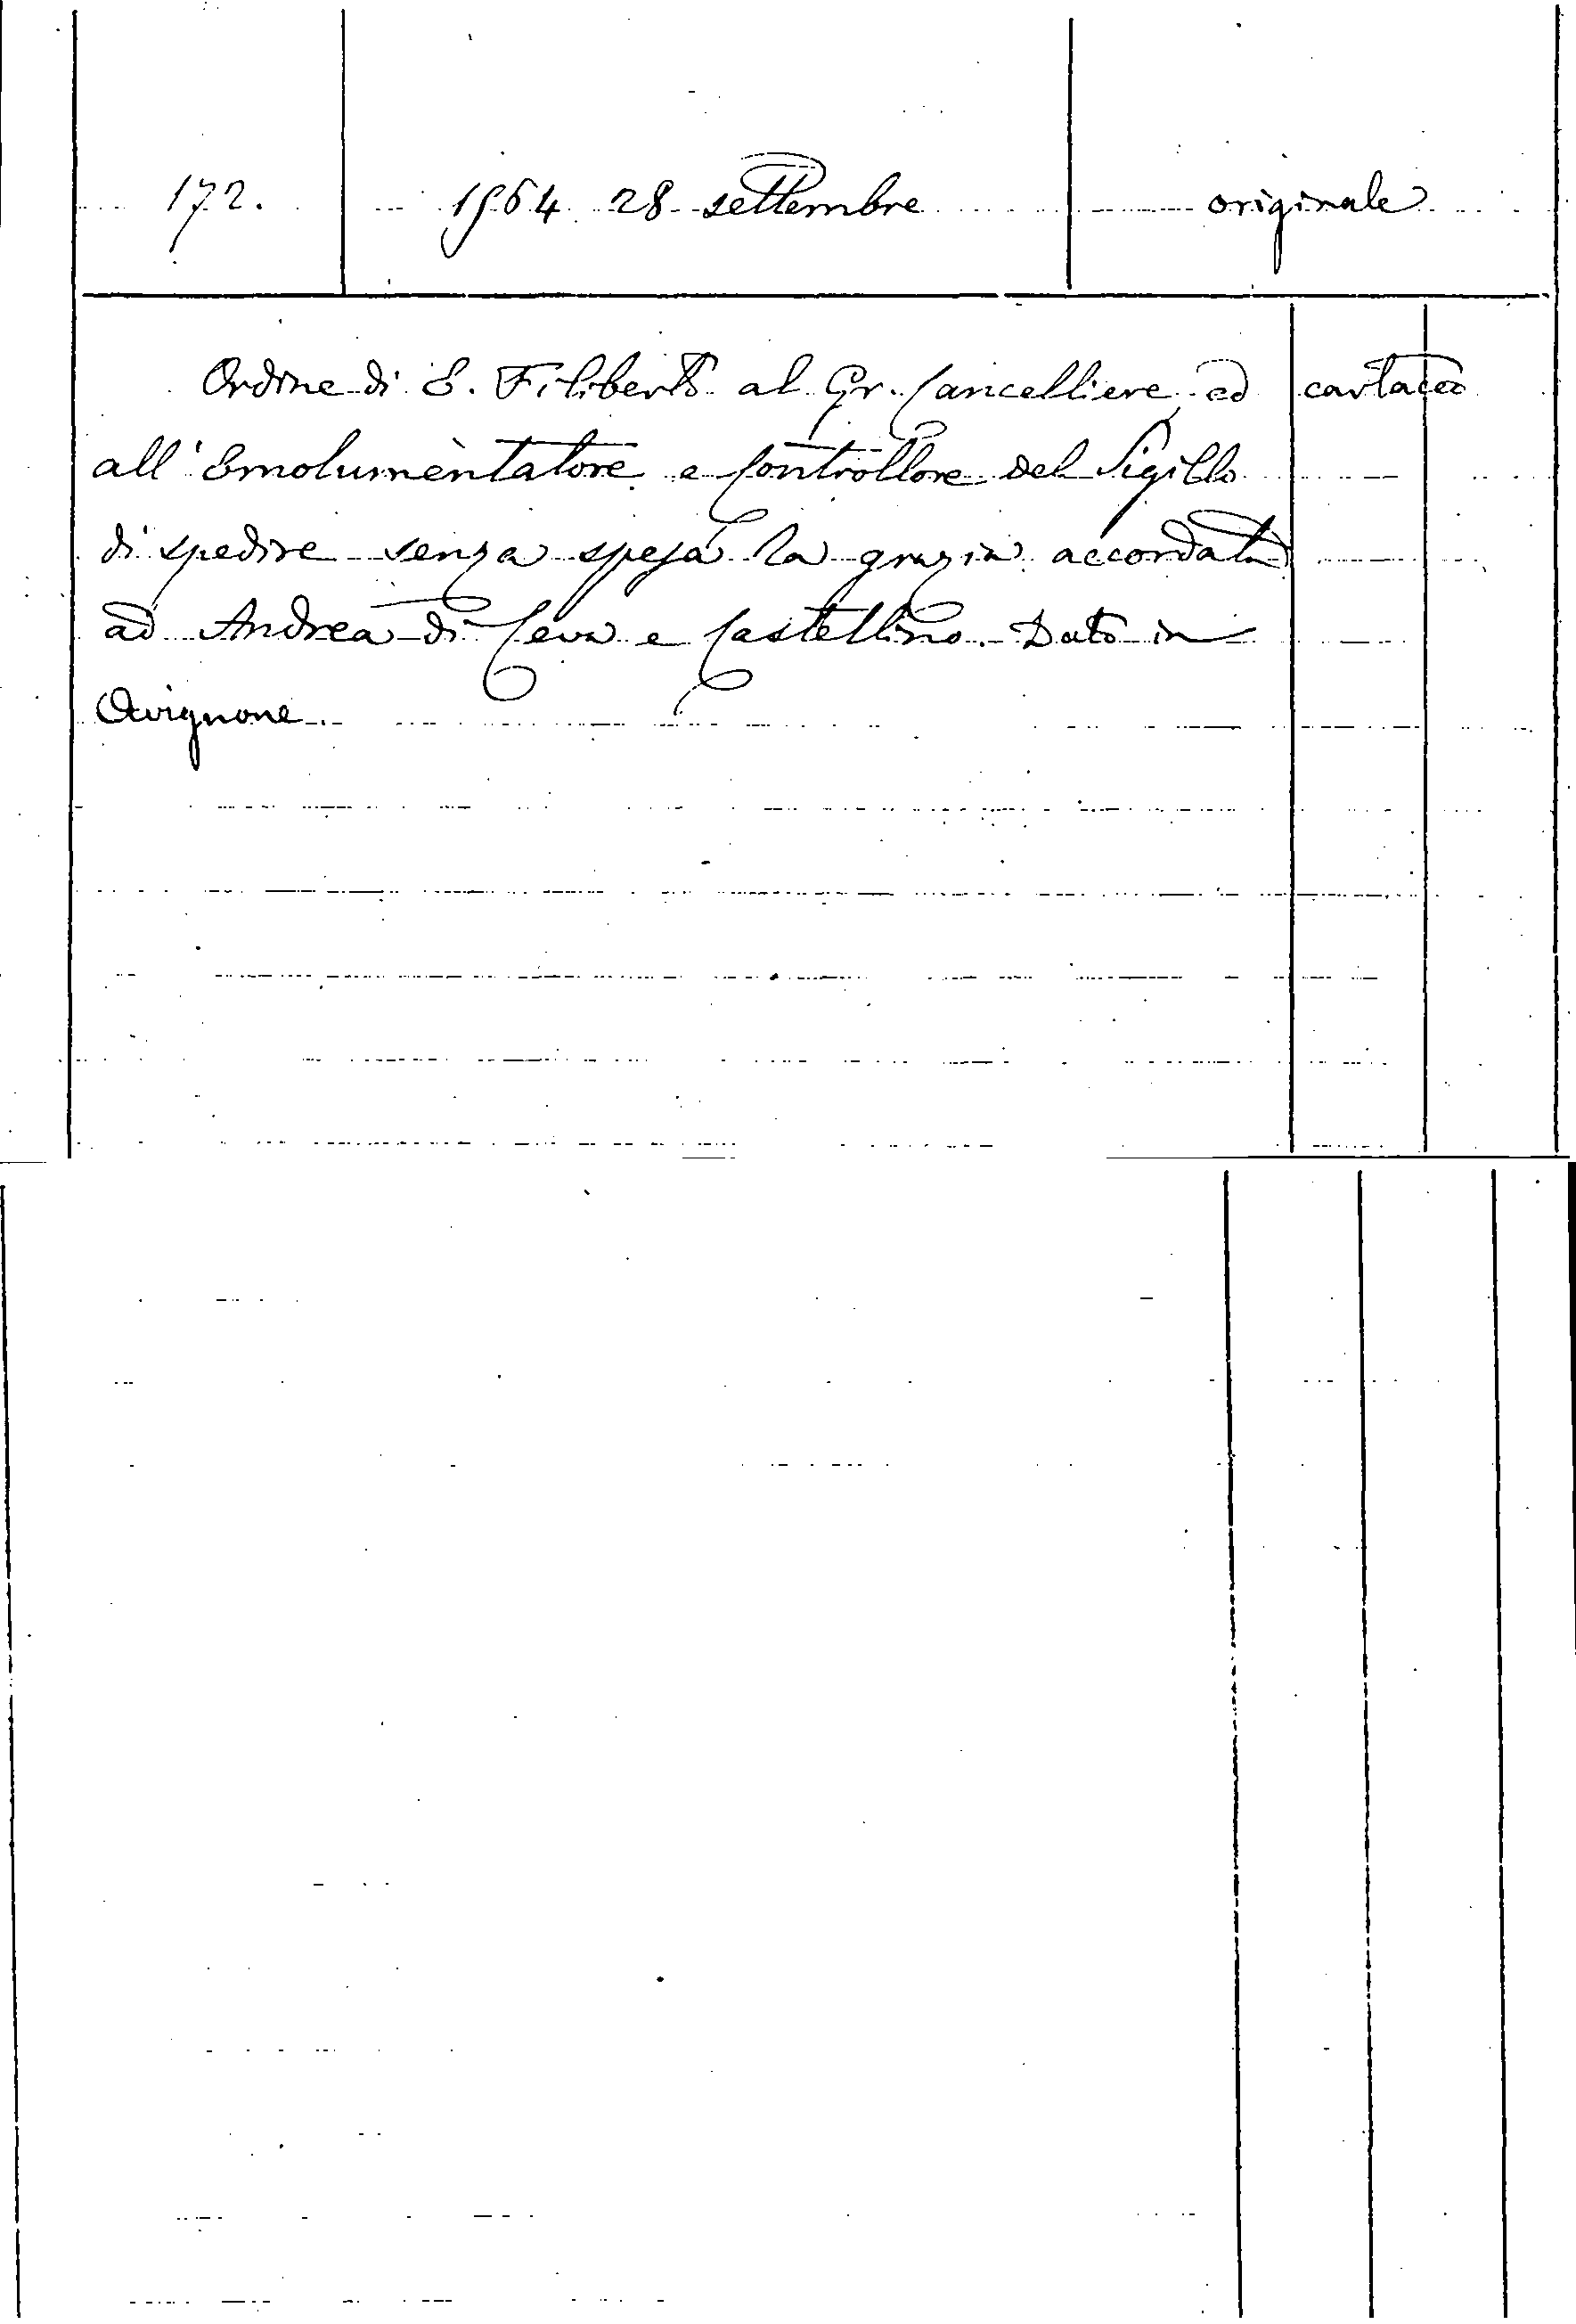 172. 1564 28 settembre originale
Ordine di E. Filiberto al Gr. Cancelliere ed cartaceo
all'Emolumentatore e Controllore del Sigillo
di spedire senza spesa la grazia accordata
ad Andrea di Ceva e Castellino. Dato in
Avignone.